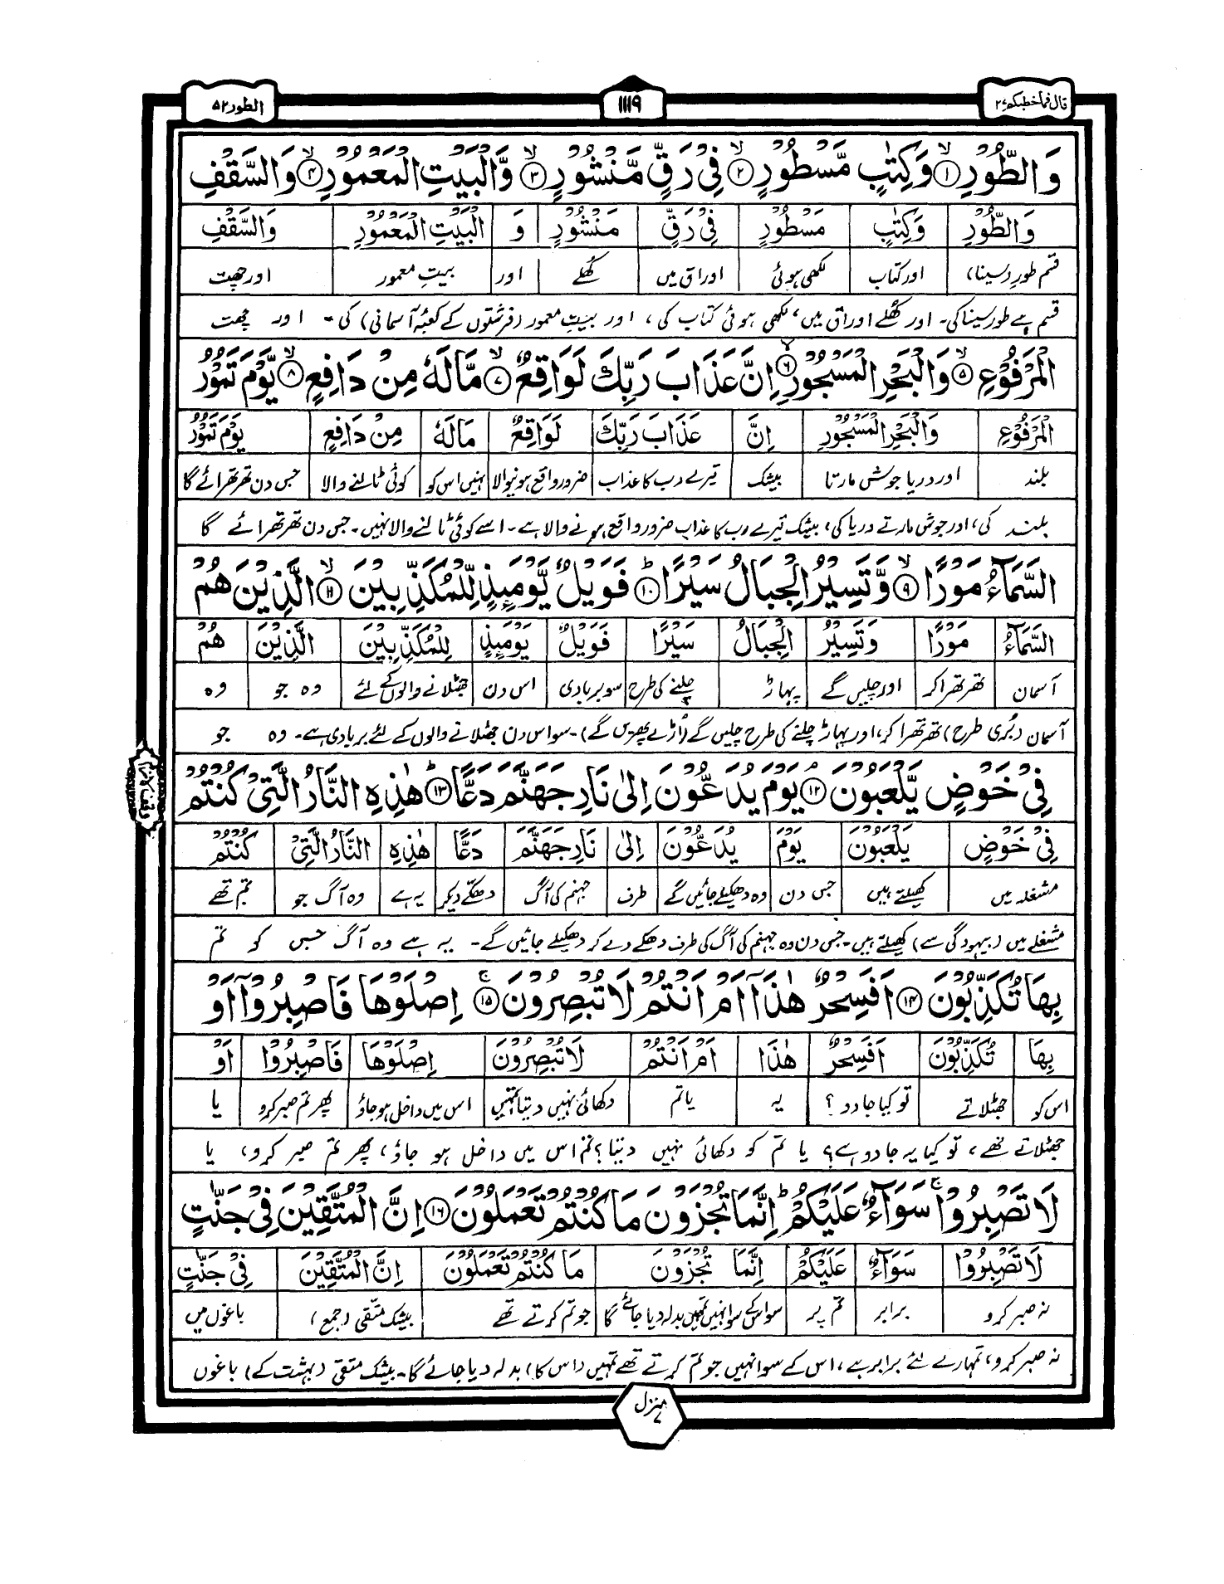 قال فما خطبكم ٢٧
١١١٩
الطور ٥٢
وَالطُّوْرِ ۝۱ۙ وَكِتٰبٍ مَّسْطُوْرٍ ۝۲ۙ فِیْ رَقٍّ مَّنْشُوْرٍ ۝۳ۙ وَّالْبَیْتِ الْمَعْمُوْرِ ۝۴ۙ وَالسَّقْفِ
وَالطُّوْرِ وَكِتٰبٍ مَسْطُوْرٍ فِیْ رَقٍّ مَنْشُوْرٍ وَ الْبَیْتِ الْمَعْمُوْرِ وَالسَّقْفِ
قسم طور (سینا) اور کتاب لکھی ہوئی اوراق میں کھلے اور بیتِ معمور اور چھت
قسم ہے طور سینا کی۔ اور کھلے اوراق میں، لکھی ہوئی کتاب کی، اور بیتِ معمور (فرشتوں کے کعبۂ آسمانی) کی۔ اور چھت
الْمَرْفُوْعِ ۝۵ۙ وَالْبَحْرِ الْمَسْجُوْرِ ۝۶ۙ اِنَّ عَذَابَ رَبِّكَ لَوَاقِعٌ ۝۷ۙ مَّا لَهٗ مِنْ دَافِعٍ ۝۸ۙ یَّوْمَ تَمُوْرُ
الْمَرْفُوْعِ وَالْبَحْرِ الْمَسْجُوْرِ اِنَّ عَذَابَ رَبِّكَ لَوَاقِعٌ مَا لَهٗ مِنْ دَافِعٍ یَوْمَ تَمُوْرُ
بلند اور دریا جوش مارتا بیشک تیرے رب کا عذاب ضرور واقع ہونیوالا نہیں اس کو کوئی ٹالنے والا جس دن تھرتھرائے گا
بلند کی، اور جوش مارتے دریا کی، بیشک تیرے رب کا عذاب ضرور واقع ہونے والا ہے۔ اسے کوئی ٹالنے والا نہیں۔ جس دن تھرتھرائے گا
السَّمَآءُ مَوْرًا ۝۹ۙ وَّتَسِیْرُ الْجِبَالُ سَیْرًا ۝۱۰ؕ فَوَیْلٌ یَّوْمَئِذٍ لِّلْمُكَذِّبِیْنَ ۝۱۱ۙ الَّذِیْنَ هُمْ
السَّمَآءُ مَوْرًا وَتَسِیْرُ الْجِبَالُ سَیْرًا فَوَیْلٌ یَوْمَئِذٍ لِلْمُكَذِّبِیْنَ الَّذِیْنَ هُمْ
آسمان تھرتھرا کر اور چلیں گے پہاڑ چلنے کی طرح سو بربادی اس دن جھٹلانے والوں کے لئے وہ جو وہ
آسمان (بُری طرح) تھرتھرا کر، اور پہاڑ چلنے کی طرح چلیں گے (اُڑے پھریں گے)۔ سو اس دن جھٹلانے والوں کے لئے بربادی ہے۔ وہ جو
فِیْ خَوْضٍ یَّلْعَبُوْنَ ۝۱۲ۘ یَوْمَ یُدَعُّوْنَ اِلٰی نَارِ جَهَنَّمَ دَعًّا ۝۱۳ؕ هٰذِهِ النَّارُ الَّتِیْ كُنْتُمْ
فِیْ خَوْضٍ یَلْعَبُوْنَ یَوْمَ یُدَعُّوْنَ اِلٰی نَارِ جَهَنَّمَ دَعًّا هٰذِهِ النَّارُ الَّتِیْ كُنْتُمْ
مشغلہ میں کھیلتے ہیں جس دن وہ دھکیلے جائیں گے طرف جہنم کی آگ دھکے دیکر یہ ہے وہ آگ جو تم تھے
مشغلے میں (بیہودگی سے) کھیلتے ہیں۔ جس دن وہ جہنم کی آگ کی طرف دھکے دے کر دھکیلے جائیں گے۔ یہ ہے وہ آگ جس کو تم
بِهَا تُكَذِّبُوْنَ ۝۱۴ اَفَسِحْرٌ هٰذَاۤ اَمْ اَنْتُمْ لَا تُبْصِرُوْنَ ۝۱۵ۚ اِصْلَوْهَا فَاصْبِرُوْۤا اَوْ
بِهَا تُكَذِّبُوْنَ اَفَسِحْرٌ هٰذَا اَمْ اَنْتُمْ لَا تُبْصِرُوْنَ اِصْلَوْهَا فَاصْبِرُوْا اَوْ
اس کو جھٹلاتے تو کیا جادو؟ یہ یا تم دکھائی نہیں دیتا تمہیں اس میں داخل ہو جاؤ پھر تم صبر کرو یا
جھٹلاتے تھے، تو کیا یہ جادو ہے؟ یا تم کو دکھائی نہیں دیتا؟ تم اس میں داخل ہو جاؤ، پھر تم صبر کرو، یا
لَا تَصْبِرُوْا ۚ سَوَآءٌ عَلَیْكُمْ ؕ اِنَّمَا تُجْزَوْنَ مَا كُنْتُمْ تَعْمَلُوْنَ ۝۱۶ اِنَّ الْمُتَّقِیْنَ فِیْ جَنّٰتٍ
لَا تَصْبِرُوْا سَوَآءٌ عَلَیْكُمْ اِنَّمَا تُجْزَوْنَ مَا كُنْتُمْ تَعْمَلُوْنَ اِنَّ الْمُتَّقِیْنَ فِیْ جَنّٰتٍ
نہ صبر کرو برابر تم پر سو اس کے سوا نہیں تمہیں بدلہ دیا جائے گا جو تم کرتے تھے بیشک متقی (جمع) باغوں میں
نہ صبر کرو، تمہارے لئے برابر ہے، اس کے سوا نہیں جو تم کرتے تھے تمہیں (اس کا) بدلہ دیا جائے گا۔ بیشک متقی (بہشت کے) باغوں
منزل ٧